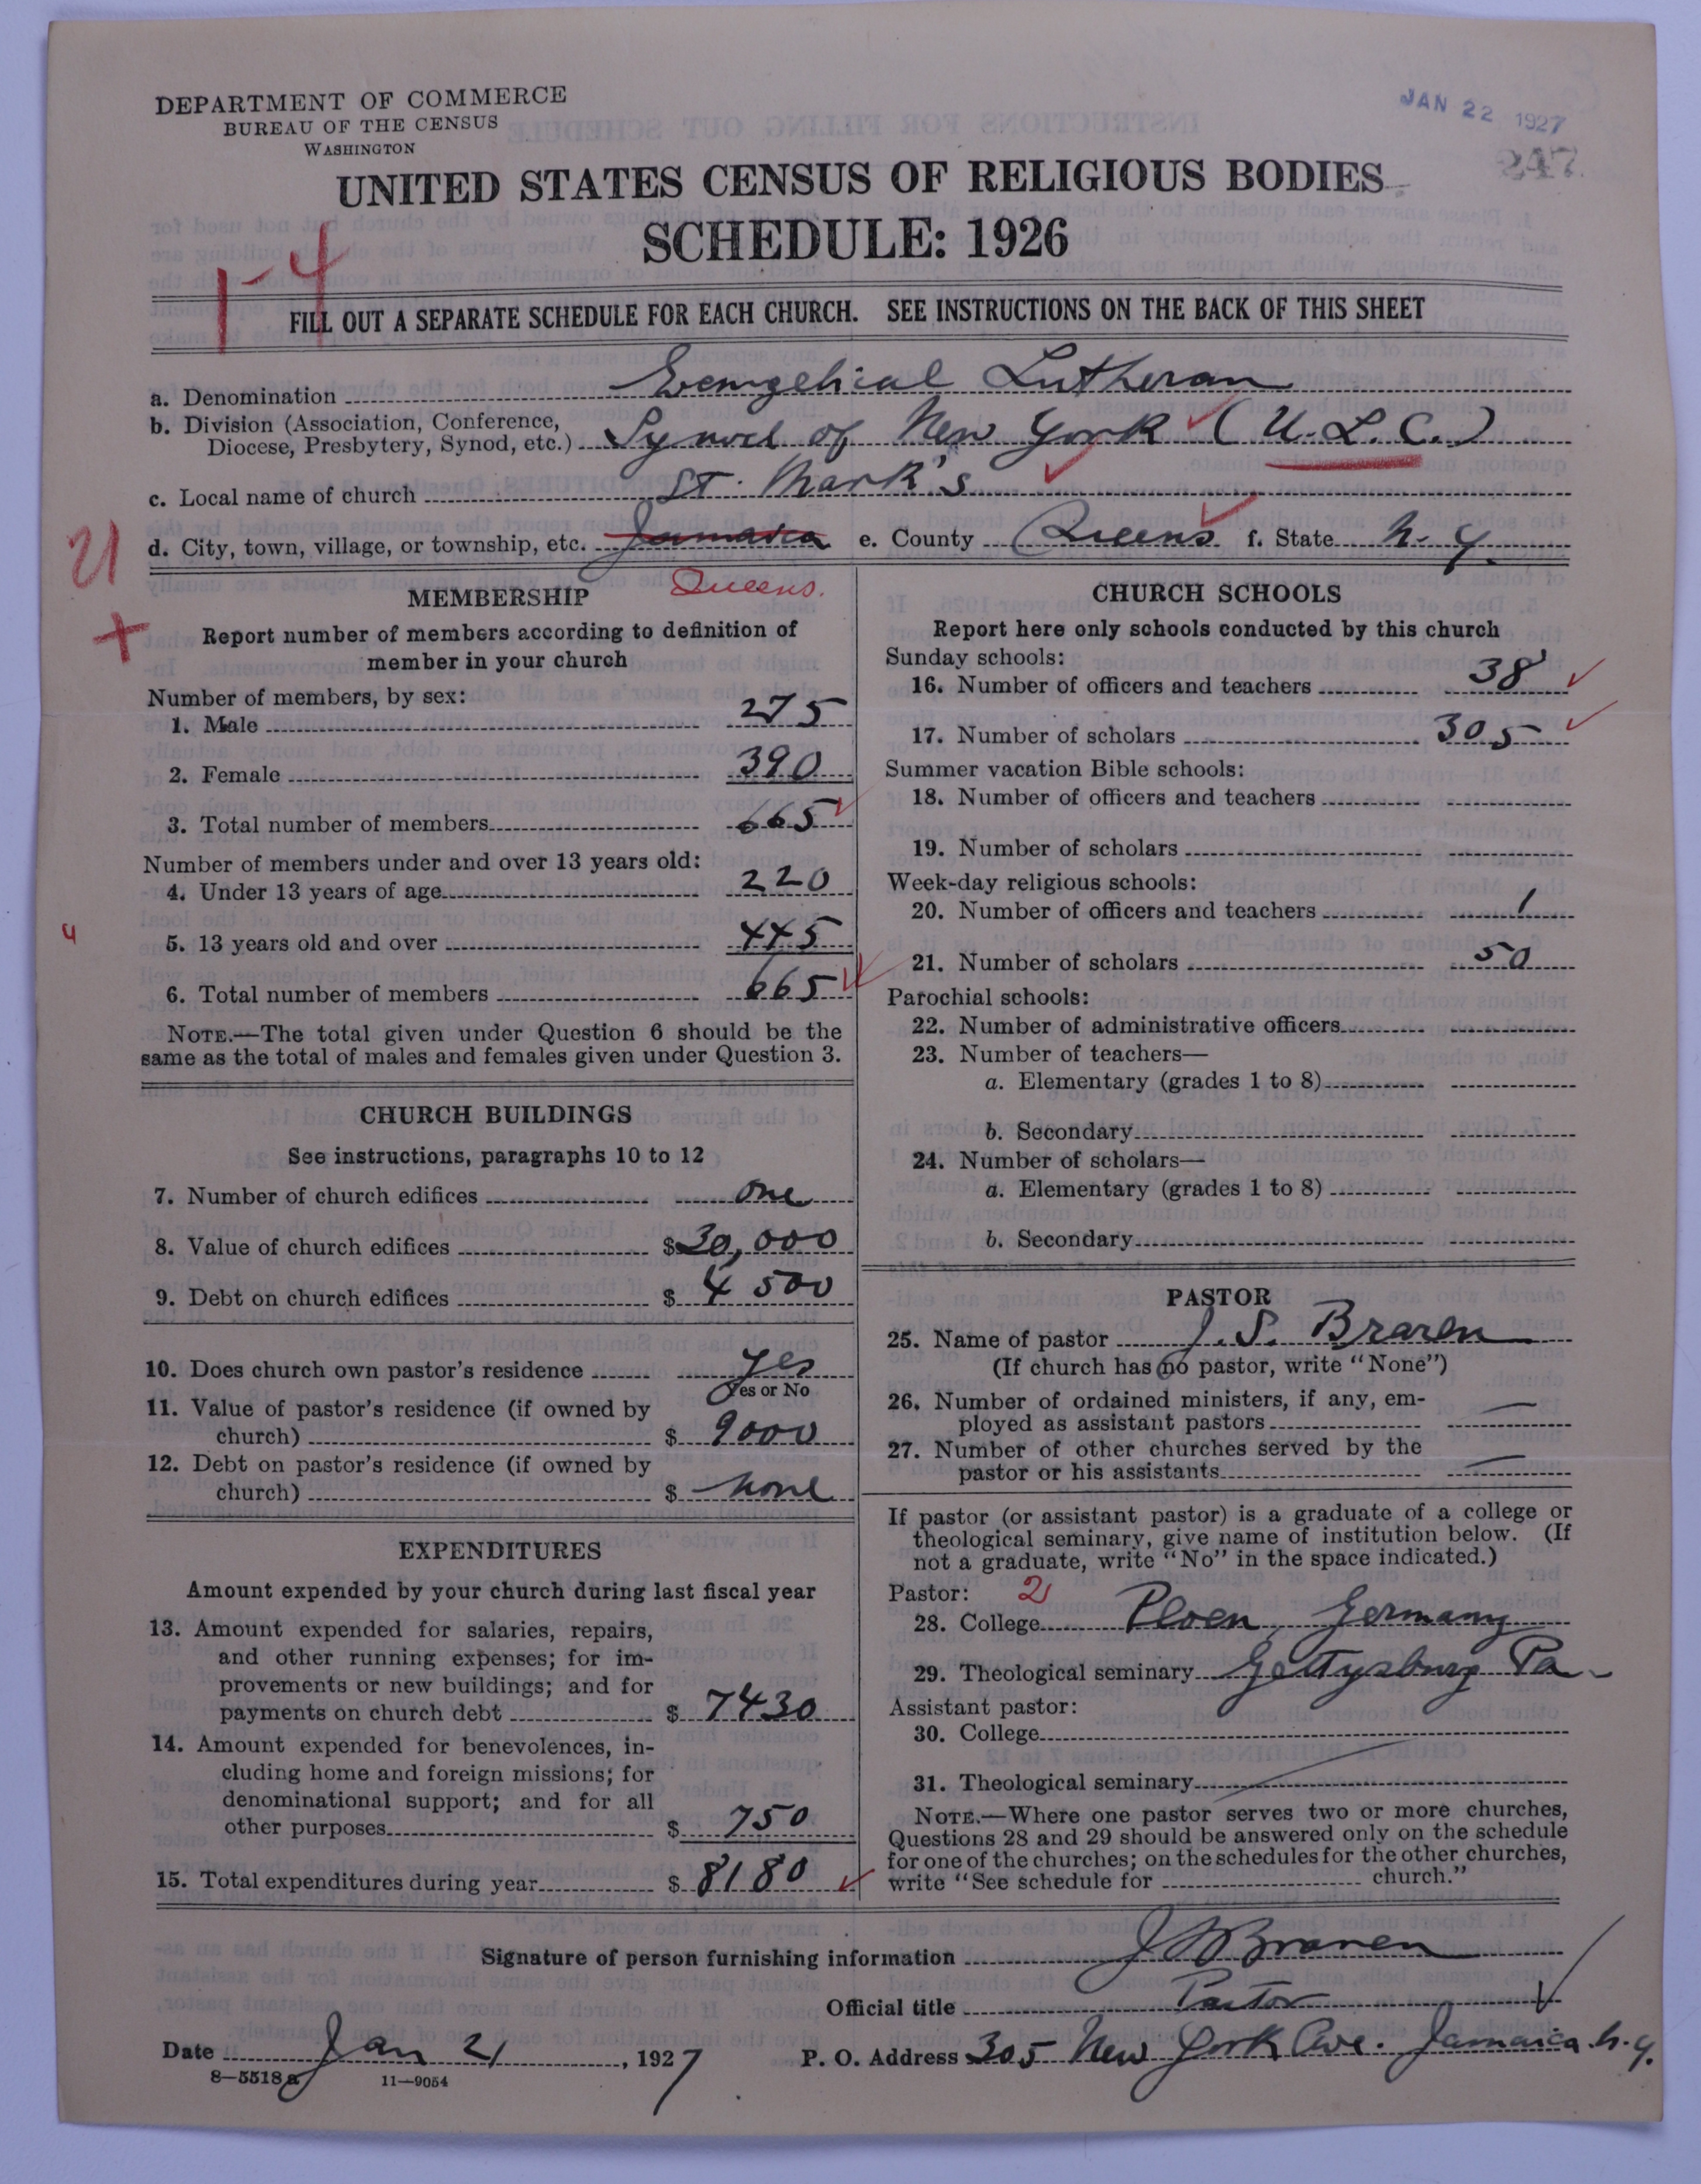 DEPARTMENT OF COMMERCE
BUREAU OF THE CENSUS
WASHINGTON
JAN 22 1927
247
UNITED STATES CENSUS OF RELIGIOUS BODIES
SCHEDULE: 1926
1-4
FILL OUT A SEPARATE SCHEDULE FOR EACH CHURCH. SEE INSTRUCTIONS ON THE BACK OF THIS SHEET
a. Denomination Evangelical Lutheran
b. Division (Association, Conference,
Diocese, Presbytery, Synod, etc.) Synod of New York (U.L.C.)
c. Local name of church St. Mark's
21
d. City, town, village, or township, etc. Jamaica e. County Queens f. State N. Y.
Queens.
+
MEMBERSHIP
Report number of members according to definition of
member in your church
Number of members, by sex:
1. Male 275
2. Female 390
3. Total number of members 665
Number of members under and over 13 years old:
4. Under 13 years of age 220
4
5. 13 years old and over 445
6. Total number of members 665
NOTE.—The total given under Question 6 should be the
same as the total of males and females given under Question 3.
CHURCH BUILDINGS
See instructions, paragraphs 10 to 12
7. Number of church edifices one
8. Value of church edifices $30,000
9. Debt on church edifices $ 4500
10. Does church own pastor's residence yes
Yes or No
11. Value of pastor's residence (if owned by
church) $ 9000
12. Debt on pastor's residence (if owned by
church) $ none
EXPENDITURES
Amount expended by your church during last fiscal year
13. Amount expended for salaries, repairs,
and other running expenses; for im-
provements or new buildings; and for
payments on church debt $ 7430
14. Amount expended for benevolences, in-
cluding home and foreign missions; for
denominational support; and for all
other purposes $ 750
15. Total expenditures during year $ 8180
CHURCH SCHOOLS
Report here only schools conducted by this church
Sunday schools:
16. Number of officers and teachers 38
17. Number of scholars 305
Summer vacation Bible schools:
18. Number of officers and teachers
19. Number of scholars
Week-day religious schools:
20. Number of officers and teachers 1
21. Number of scholars 50
Parochial schools:
22. Number of administrative officers
23. Number of teachers—
a. Elementary (grades 1 to 8)
b. Secondary
24. Number of scholars—
a. Elementary (grades 1 to 8)
b. Secondary
PASTOR
25. Name of pastor J. S. Braren
(If church has no pastor, write "None")
26. Number of ordained ministers, if any, em-
ployed as assistant pastors —
27. Number of other churches served by the
pastor or his assistants —
If pastor (or assistant pastor) is a graduate of a college or
theological seminary, give name of institution below. (If
not a graduate, write "No" in the space indicated.)
Pastor: 2
28. College Ploen, Germany
29. Theological seminary Gettysburg Pa.
Assistant pastor:
30. College
31. Theological seminary
NOTE.—Where one pastor serves two or more churches,
Questions 28 and 29 should be answered only on the schedule
for one of the churches; on the schedules for the other churches,
write "See schedule for church."
Signature of person furnishing information J S Braren
Official title Pastor
Date Jan 21, 1927 P. O. Address 305 New York Ave. Jamaica N.Y.
8—5518 a 11—9054